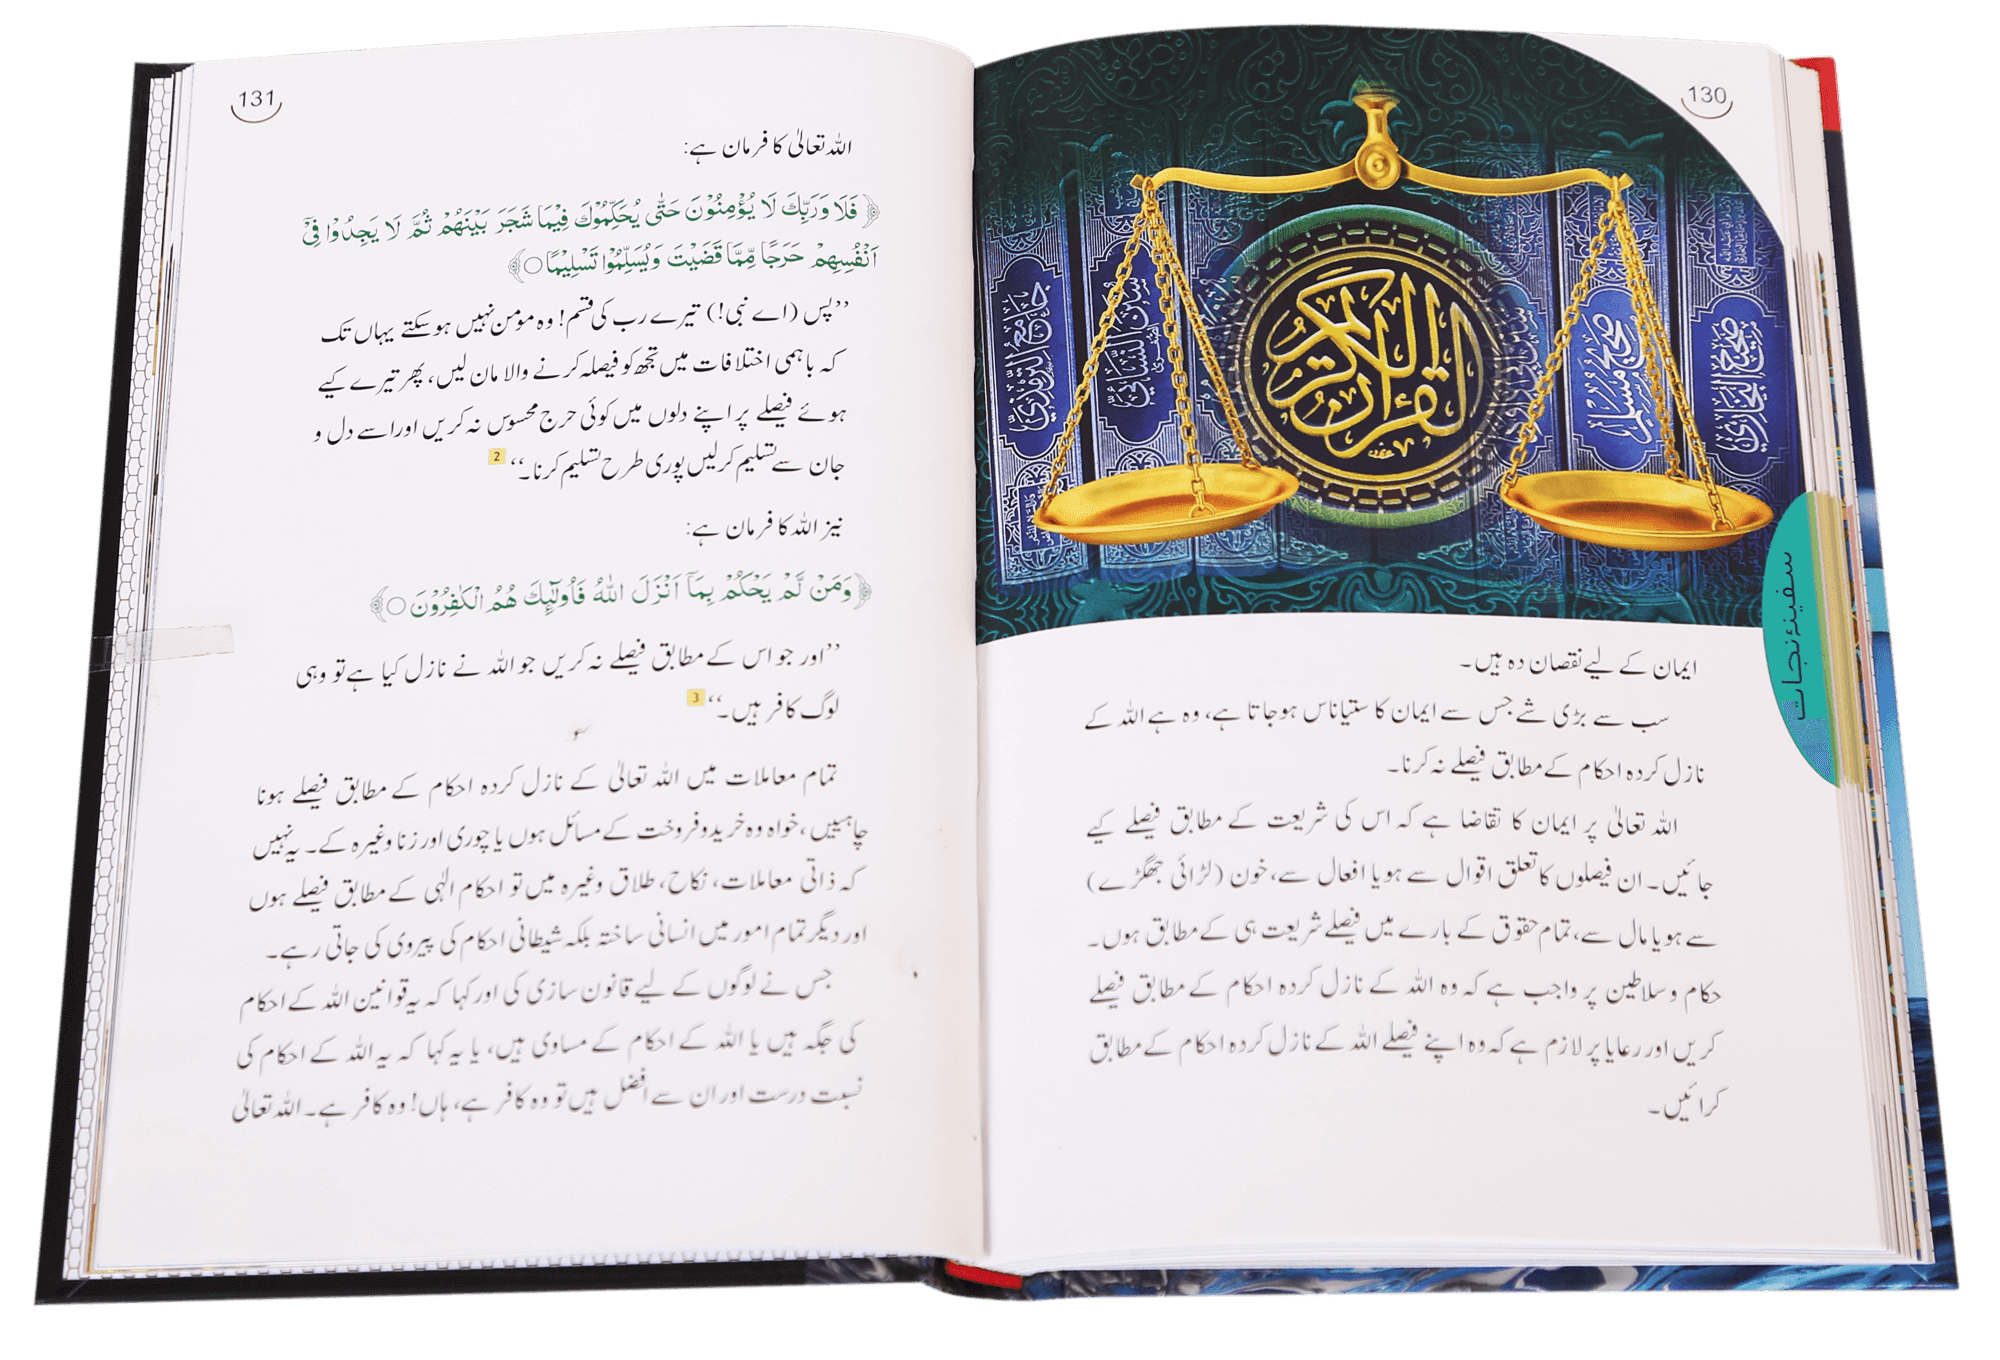 130
جامع الترمذي
سنن النسائي
القرآن الكريم
سنن أبي داود
صحيح مسلم
صحيح البخاري
سفینۂ نجات
ایمان کے لیے نقصان دہ ہیں۔
سب سے بڑی شے جس سے ایمان کا ستیاناس ہوجاتا ہے، وہ ہے اللہ کے
نازل کردہ احکام کے مطابق فیصلے نہ کرنا۔
اللہ تعالیٰ پر ایمان کا تقاضا ہے کہ اس کی شریعت کے مطابق فیصلے کیے
جائیں۔ ان فیصلوں کا تعلق اقوال سے ہو یا افعال سے، خون (لڑائی جھگڑے)
سے ہو یا مال سے، تمام حقوق کے بارے میں فیصلے شریعت ہی کے مطابق ہوں۔
حکام وسلاطین پر واجب ہے کہ وہ اللہ کے نازل کردہ احکام کے مطابق فیصلے
کریں اور رعایا پر لازم ہے کہ وہ اپنے فیصلے اللہ کے نازل کردہ احکام کے مطابق
کرائیں۔
131
اللہ تعالیٰ کا فرمان ہے:
﴿فَلَا وَرَبِّكَ لَا يُؤْمِنُوْنَ حَتّٰى يُحَكِّمُوْكَ فِيْمَا شَجَرَ بَيْنَهُمْ ثُمَّ لَا يَجِدُوْا فِيْٓ
اَنْفُسِهِمْ حَرَجًا مِّمَّا قَضَيْتَ وَيُسَلِّمُوْا تَسْلِيْمًا○﴾
’’پس (اے نبی!) تیرے رب کی قسم! وہ مومن نہیں ہوسکتے یہاں تک
کہ باہمی اختلافات میں تجھ کو فیصلہ کرنے والا مان لیں، پھر تیرے کیے
ہوئے فیصلے پر اپنے دلوں میں کوئی حرج محسوس نہ کریں اور اسے دل و
جان سے تسلیم کرلیں پوری طرح تسلیم کرنا۔‘‘ 2
نیز اللہ کا فرمان ہے:
﴿وَمَنْ لَّمْ يَحْكُمْ بِمَآ اَنْزَلَ اللّٰهُ فَاُولٰٓئِكَ هُمُ الْكٰفِرُوْنَ○﴾
’’اور جو اس کے مطابق فیصلے نہ کریں جو اللہ نے نازل کیا ہے تو وہی
لوگ کافر ہیں۔‘‘ 3
تمام معاملات میں اللہ تعالیٰ کے نازل کردہ احکام کے مطابق فیصلے ہونا
چاہییں، خواہ وہ خریدوفروخت کے مسائل ہوں یا چوری اور زنا وغیرہ کے۔ یہ نہیں
کہ ذاتی معاملات، نکاح، طلاق وغیرہ میں تو احکام الٰہی کے مطابق فیصلے ہوں
اور دیگر تمام امور میں انسانی ساختہ بلکہ شیطانی احکام کی پیروی کی جاتی رہے۔
جس نے لوگوں کے لیے قانون سازی کی اور کہا کہ یہ قوانین اللہ کے احکام
کی جگہ ہیں یا اللہ کے احکام کے مساوی ہیں، یا یہ کہا کہ یہ اللہ کے احکام کی
نسبت درست اور ان سے افضل ہیں تو وہ کافر ہے، ہاں! وہ کافر ہے۔ اللہ تعالیٰ